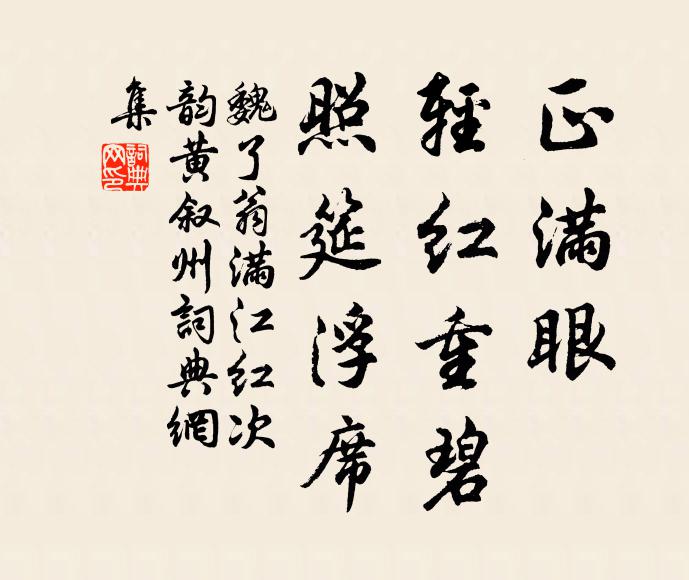 正滿眼
輕紅重碧
照筵浮席
魏了翁滿江紅次
韵黄叙州詞典網
集
詞典
网印